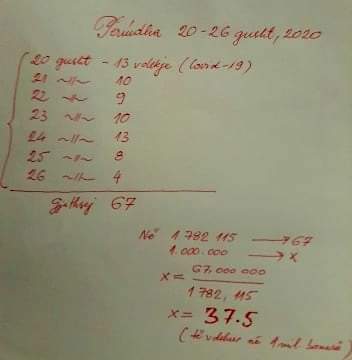 Periudha 20-26 gusht, 2020
20 gusht - 13 vdekje (Covid-19)
21 ~//~ 10
22 ~//~ 9
23 ~//~ 10
24 ~//~ 13
25 ~//~ 8
26 ~//~ 4
gjithsej 67
Në 1 782 115 → 67
1.000.000 → x
x = 67.000 000
1 782, 115
x = 37.5
(të vdekur në 1 mil banorë)